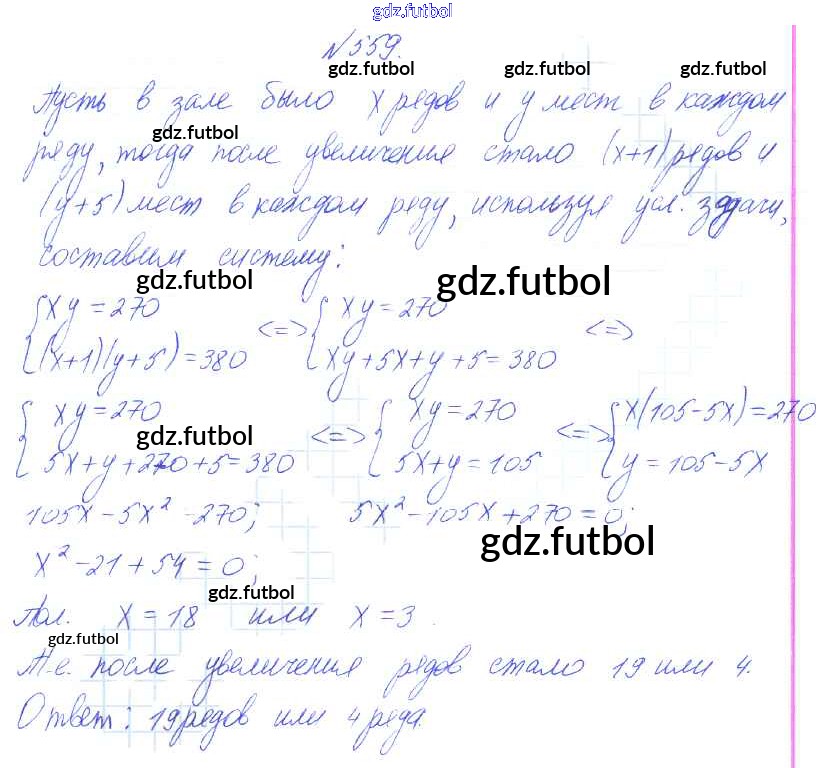 gdz.futbol
№ 559.
gdz.futbol gdz.futbol gdz.futbol
Пусть в зале было x рядов и y мест в каждом
gdz.futbol
ряду, тогда после увеличения стало (x+1) рядов и
(y+5) мест в каждом ряду, используя усл. задачи,
составим систему:
gdz.futbol gdz.futbol
{ xy = 270 <=> { xy = 270 <=>
(x+1)(y+5) = 380 xy + 5x + y + 5 = 380
{ xy = 270 <=> { xy = 270 <=> { x(105-5x) = 270
gdz.futbol
5x + y + 270 + 5 = 380 5x + y = 105 y = 105 - 5x
105x - 5x² - 270; 5x² - 105x + 270 = 0;
gdz.futbol
x² - 21 + 54 = 0;
gdz.futbol
Пол. x = 18 или x = 3.
gdz.futbol
Т.е. после увеличения рядов стало 19 или 4.
Ответ: 19 рядов или 4 ряда.